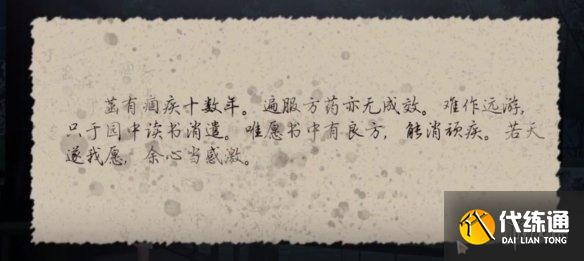 茁有痼疾十数年。遍服方药亦无成效。难作远游，
只于园中读书消遣。唯愿书中有良方，能消顽疾。若天
遂我愿，余心当感激。
代练通
DAI LIAN TONG